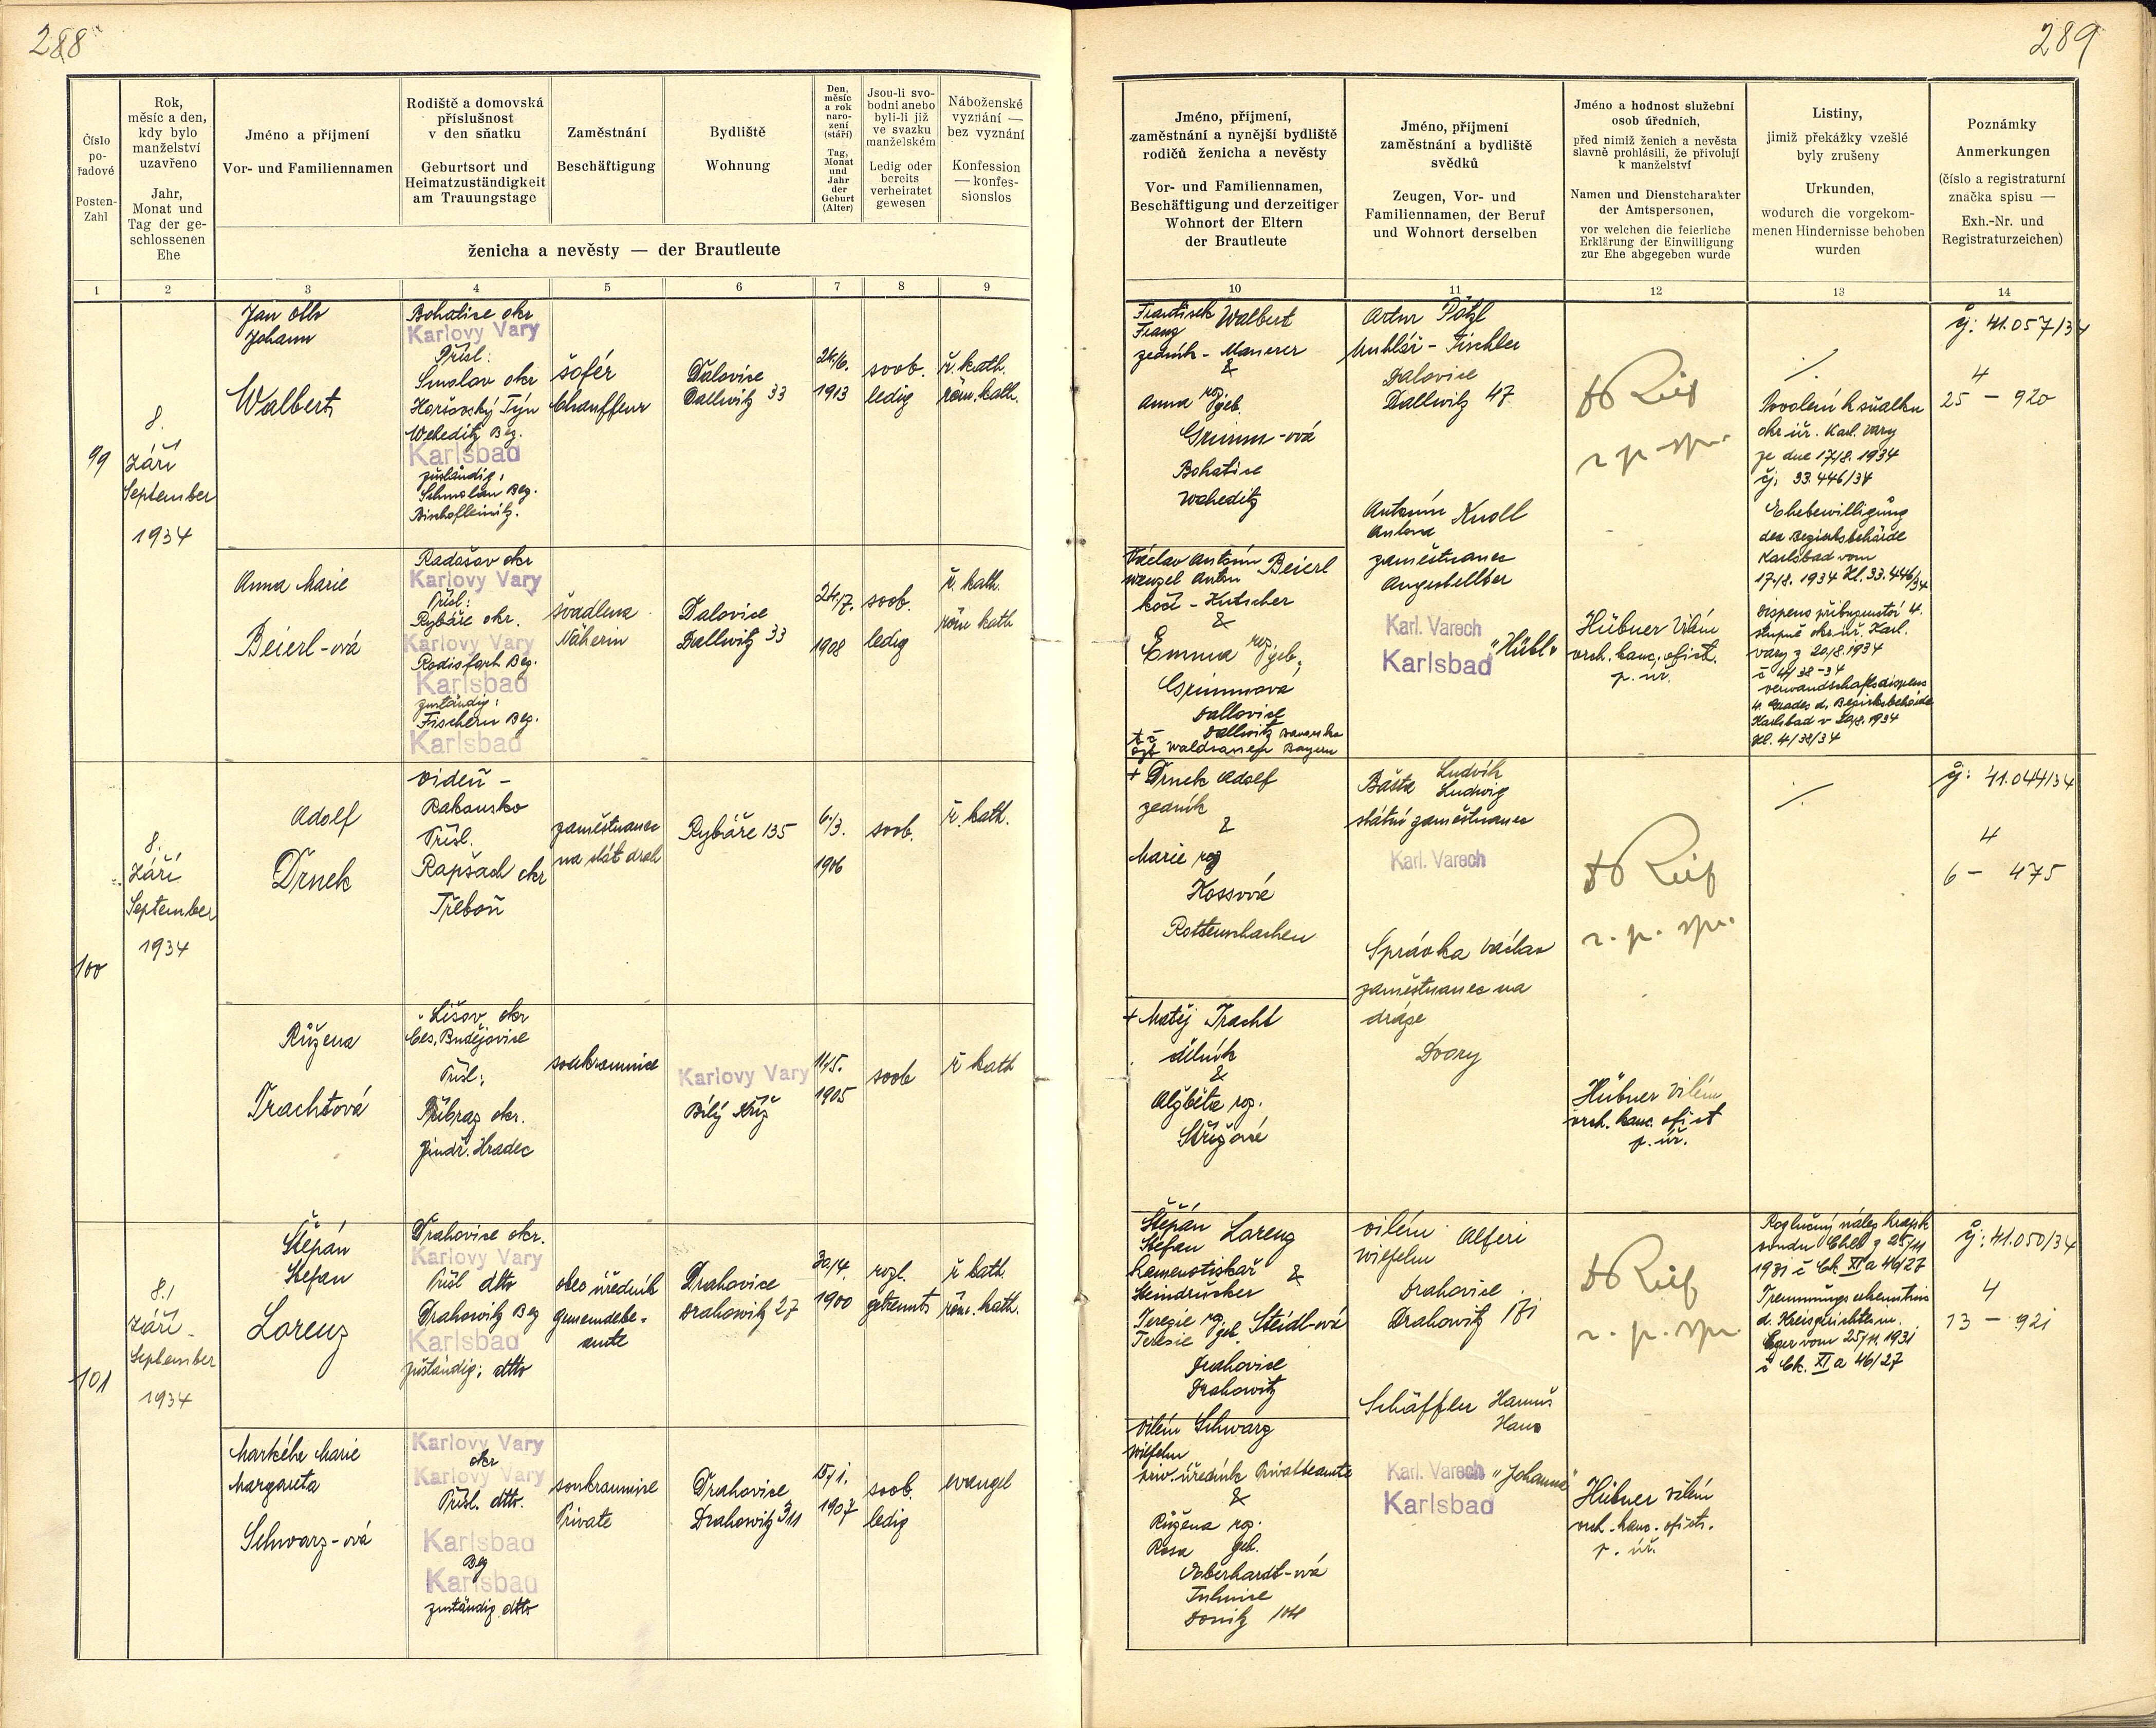 288
289
Číslo
po-
řadové
Posten-
Zahl
Rok,
měsíc a den,
kdy bylo
manželství
uzavřeno
Jahr,
Monat und
Tag der ge-
schlossenen
Ehe
Jméno a přijmení
Vor- und Familiennamen
Rodiště a domovská
příslušnost
v den sňatku
Geburtsort und
Heimatzuständigkeit
am Trauungstage
Zaměstnání
Beschäftigung
Bydliště
Wohnung
Den,
měsíc
a rok
naro-
zení
(stáří)
Tag,
Monat
und
Jahr
der
Geburt
(Alter)
Jsou-li svo-
bodni anebo
byli-li již
ve svazku
manželském
Ledig oder
bereits
verheiratet
gewesen
Náboženské
vyznání —
bez vyznání
Konfession
— konfes-
sionslos
ženicha a nevěsty — der Brautleute
1 2 3 4 5 6 7 8 9
99
8.
Září
September
1934
Jan Otto
Johann
Walbert
Bohatice okr
Karlovy Vary
Přísl:
Smolov okr
Horšovský Týn
Weheditz Bez.
Karlsbad
zuständig:
Schmolau Bez.
Bischofteinitz.
šofér
Chauffeur
Dalovice
Dallwitz 33
24./6.
1913
svob.
ledig
ř. kath.
röm. kath.
Anna Marie
Beierl-ová
Radošov okr
Karlovy Vary
Přísl:
Rybáře okr.
Karlovy Vary
Rodisfort Bez.
Karlsbad
zuständig:
Fischern Bez.
Karlsbad
švadlena
Näherin
Dalovice
Dallwitz 33
24./7.
1908
svob.
ledig
ř. kath.
röm kath
100
8.
Září
September
1934
Adolf
Drnek
Videň -
Rakousko
Přísl.
Rapšach okr
Třeboň
zaměstnanec
na stát drah
Rybáře 135
6./3.
1906
svob.
ř. kath.
Růžena
Trachtová
Lišov okr
Čes. Budějovice
Přísl:
Příbraz okr.
Jindř. Hradec
soukromnice
Karlovy Vary
Bílý Kříž
11/5.
1905
svob
ř kath
101
8./
Září
September
1934
Štěpán
Stefan
Lorenz
Drahovice okr.
Karlovy Vary
Přísl dtto
Drahowitz Bez
Karlsbad
zuständig: dtto
obec úředník
Gemeindebe-
amte
Drahovice
Drahowitz 27
30/4.
1900
rozl.
getrennt
ř kath.
röm. kath.
Markéta Marie
Margareta
Schwarz-ová
Karlovy Vary
okr
Karlovy Vary
Přísl. dtto.
Karlsbad
Bez
Karlsbad
zuständig dtto
soukromnice
Private
Drahovice
Drahowitz 311
15/1.
1907
svob.
ledig
evangel
Jméno, příjmení,
zaměstnání a nynější bydliště
rodičů ženicha a nevěsty
Vor- und Familiennamen,
Beschäftigung und derzeitiger
Wohnort der Eltern
der Brautleute
Jméno, příjmení
zaměstnání a bydliště
svědků
Zeugen, Vor- und
Familiennamen, der Beruf
und Wohnort derselben
Jméno a hodnost služební
osob úředních,
před nimiž ženich a nevěsta
slavně prohlásili, že přivolují
k manželství
Namen und Dienstcharakter
der Amtspersonen,
vor welchen die feierliche
Erklärung der Einwilligung
zur Ehe abgegeben wurde
Listiny,
jimiž překážky vzešlé
byly zrušeny
Urkunden,
wodurch die vorgekom-
menen Hindernisse behoben
wurden
Poznámky
Anmerkungen
(číslo a registraturní
značka spisu —
Exh.-Nr. und
Registraturzeichen)
10 11 12 13 14
František Walbert
Franz
zedník - Maurer
&
Anna roz. geb.
Grimm-ová
Bohatice
Weheditz
Artur Pötzl
truhlář - Tischler
Dalovice
Dallwitz 47
Antonín Knoll
Anton
zaměstnanec
Angestellter
Karl. Varech
Karlsbad "Hübl"
Hübner Vilém
vrch. kanc. ofic.
p. úř.
Povolení k sňatku
okr. úř. Karl. Vary
ze dne 17/8. 1934
čj. 33.446/34
Ehebewilligung
der Bezirksbehörde
Karlsbad vom
17/8. 1934 Zl. 33.446/34
Dispens příbuzenství 4.
stupně okr. úř. Karl.
Vary z 20/8.1934
č 4/38-34
Verwandschaftsdispens
4. Grades d. Bezirksbehörde
Karlsbad v 20/8.1934
Zl. 4/38/34
čj: 41.057/34
4
25 - 920
Václav Antonín Beierl
Wenzel Anton
kočí - Kutscher
&
Emma roz. geb.
Grimmová
Dallovice
Dallwitz
+ Drnek Adolf
zedník
&
Marie roz
Kossová
Rottenschachen
Bašta Ludvík
Ludwig
státní zaměstnanec
Karl. Varech
Správka Václav
zaměstnanec na
dráze
Dvory
Hübner Vilém
vrch. kanc. ofict
p. úř.
čj: 41.044/34
4
6 - 475
+ Matěj Tracht
dělník
&
Alžběta roz.
Střížové
Štěpán Lorenz
Stefan
Kamenotiskař &
Steindrucker
Terezie roz. Steidl-ová
Teresie geb.
Drahovice
Drahowitz
Vilém Alferi
Wilhelm
Drahovice
Drahowitz 171
Schäffler Hanuš
Hans
Karl. Varech "Johanna"
Karlsbad
Hübner Vilém
vrch. kanc. ofict.
p. úř.
Rozlučný nález krajsk
soudu Cheb z 25/11
1931 č Ck XI a 46/27
Trennungserkenntnis
d. Kreisgerichtes in
Eger vom 25/11. 1931
č Ck. XI a 46/27
čj: 41.050/34
4
13 - 921
Vilém Schwarz
Wilhelm
priv. úředník Privatbeamte
&
Růžena roz.
Rosa geb.
Eberhardt-ová
Tuhnice
Donitz 104